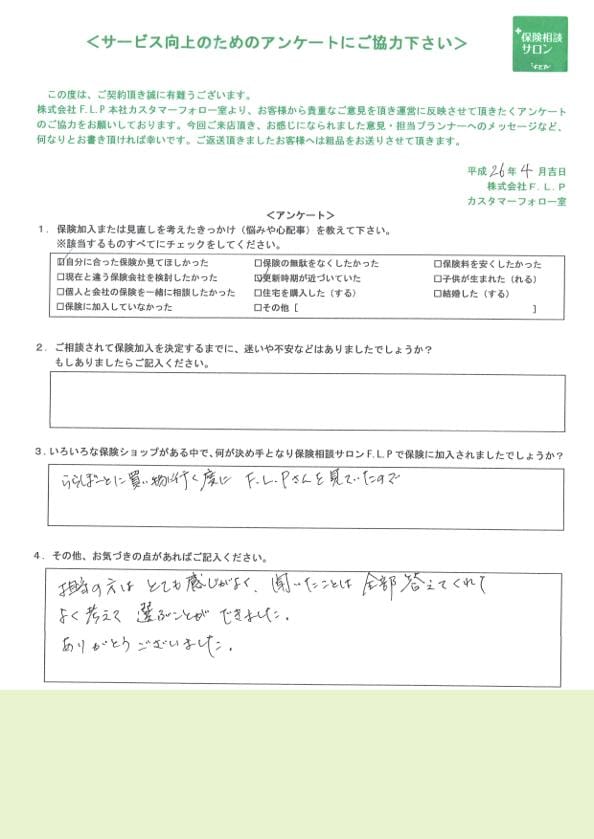 ＜サービス向上のためのアンケートにご協力下さい＞
保険相談
サロン
F.L.P
この度は、ご契約頂き誠に有難うございます。
株式会社F.L.P本社カスタマーフォロー室より、お客様から貴重なご意見を頂き運営に反映させて頂きたくアンケート
のご協力をお願いしております。今回ご来店頂き、お感じになられました意見・担当プランナーへのメッセージなど、
何なりとお書き頂ければ幸いです。ご返送頂きましたお客様へは粗品をお送りさせて頂きます。
平成 26年 4 月吉日
株式会社F.L.P
カスタマーフォロー室
＜アンケート＞
1．保険加入または見直しを考えたきっかけ（悩みや心配事）を教えて下さい。
※該当するものすべてにチェックをしてください。
☑自分に合った保険か見てほしかった □保険の無駄をなくしたかった □保険料を安くしたかった
□現在と違う保険会社を検討したかった ☑更新時期が近づいていた □子供が生まれた（れる）
□個人と会社の保険を一緒に相談したかった □住宅を購入した（する） □結婚した（する）
□保険に加入していなかった □その他［ ］
2．ご相談されて保険加入を決定するまでに、迷いや不安などはありましたでしょうか？
もしありましたらご記入ください。
3．いろいろな保険ショップがある中で、何が決め手となり保険相談サロンF.L.Pで保険に加入されましたでしょうか？
ららぽーとに買い物に行く度に F.L.Pさんを見ていたので
4．その他、お気づきの点があればご記入ください。
担当の方は とても感じがよく、聞いたことは 全部 答えてくれて
よく考えて 選ぶことが できました。
ありがとうございました。